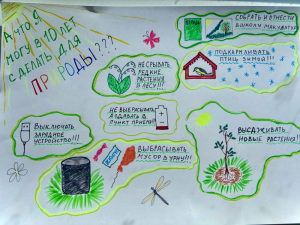 А что я
могу в 10 лет
сделать для
ПРИРОДЫ???
СОБРАТЬ И ОТНЕСТИ
В ШКОЛУ МАКУЛАТУРУ
ПОДКАРМЛИВАТЬ
ПТИЦ ЗИМОЙ!!!
НЕ СРЫВАТЬ
РЕДКИЕ
РАСТЕНИЯ
В ЛЕСУ!!!
НЕ ВЫБРАСЫВАТЬ
А СДАВАТЬ В
ПУНКТ ПРИЁМА!
ВЫКЛЮЧАТЬ
ЗАРЯДНОЕ
УСТРОЙСТВО!!!
ВЫБРАСЫВАТЬ
МУСОР В УРНУ!!!
ВЫСАЖИВАТЬ
НОВЫЕ РАСТЕНИЯ!